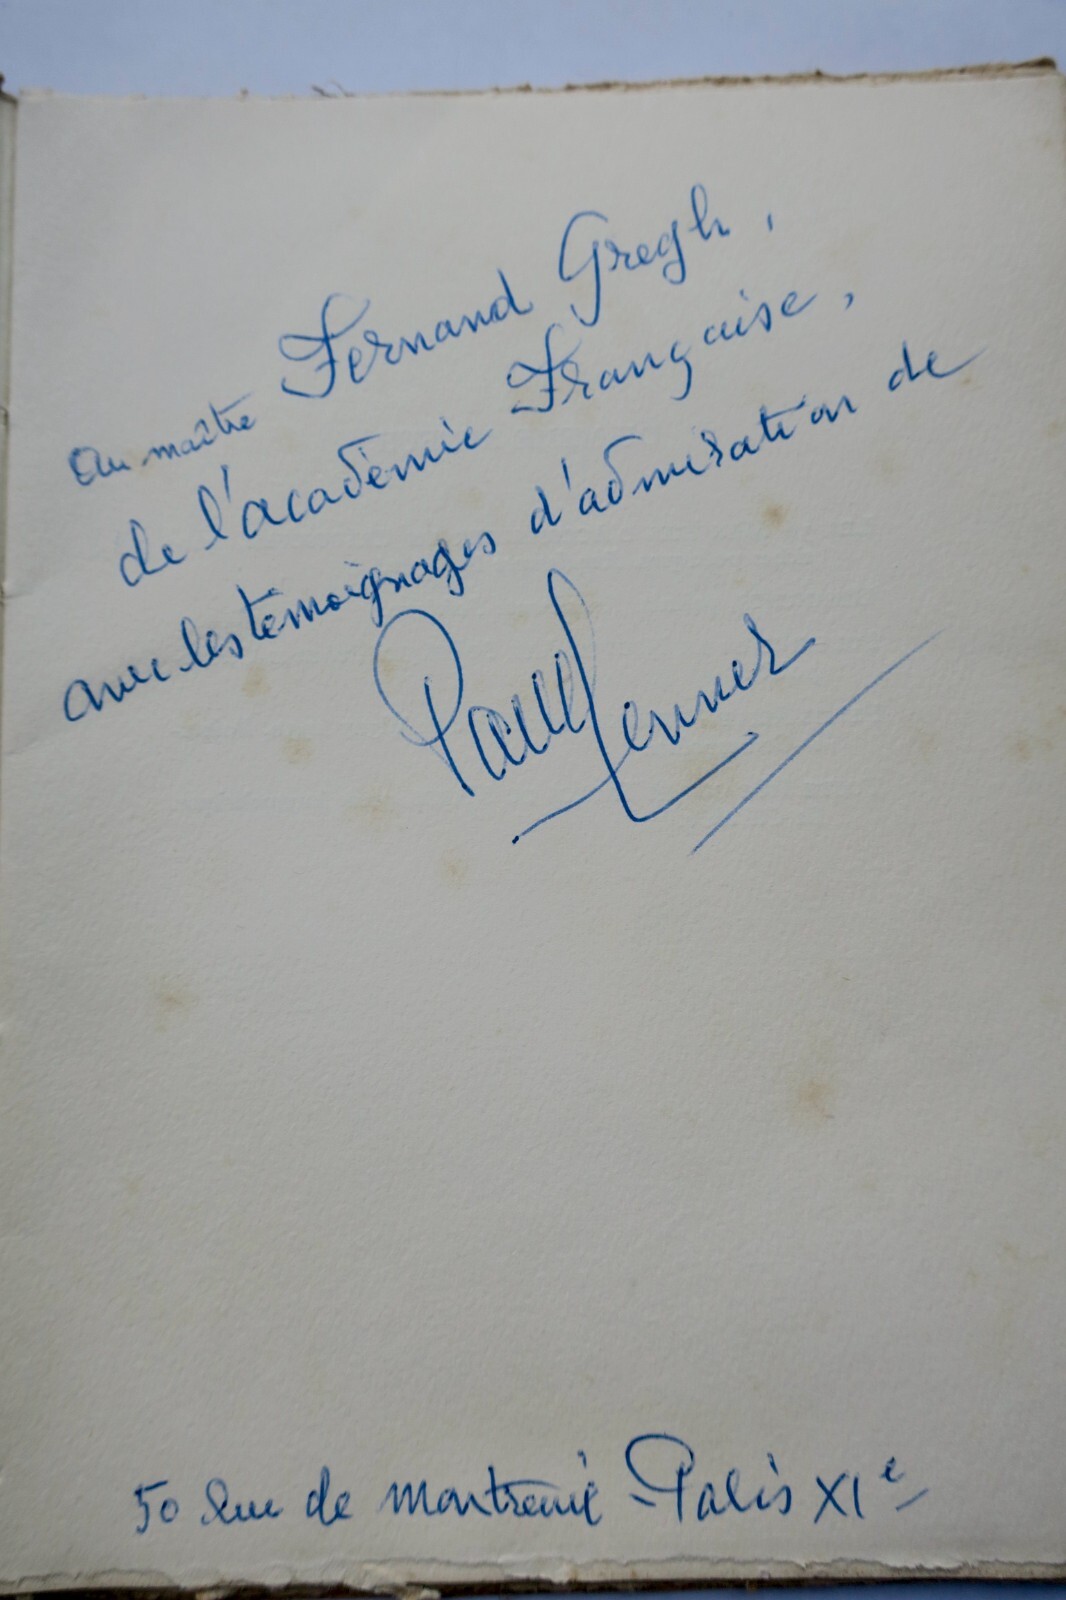 au maître Fernand Gregh,
de l'académie Française,
avec les témoignages d'admiration de
Paul
50 rue de montreuil Paris XIe